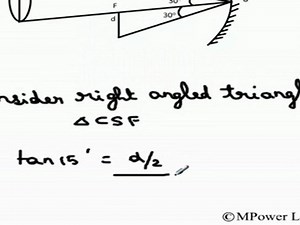 30°
F
d
30°
nsider right angled triangl
△CSF
tan 15' = d/2
©MPower L